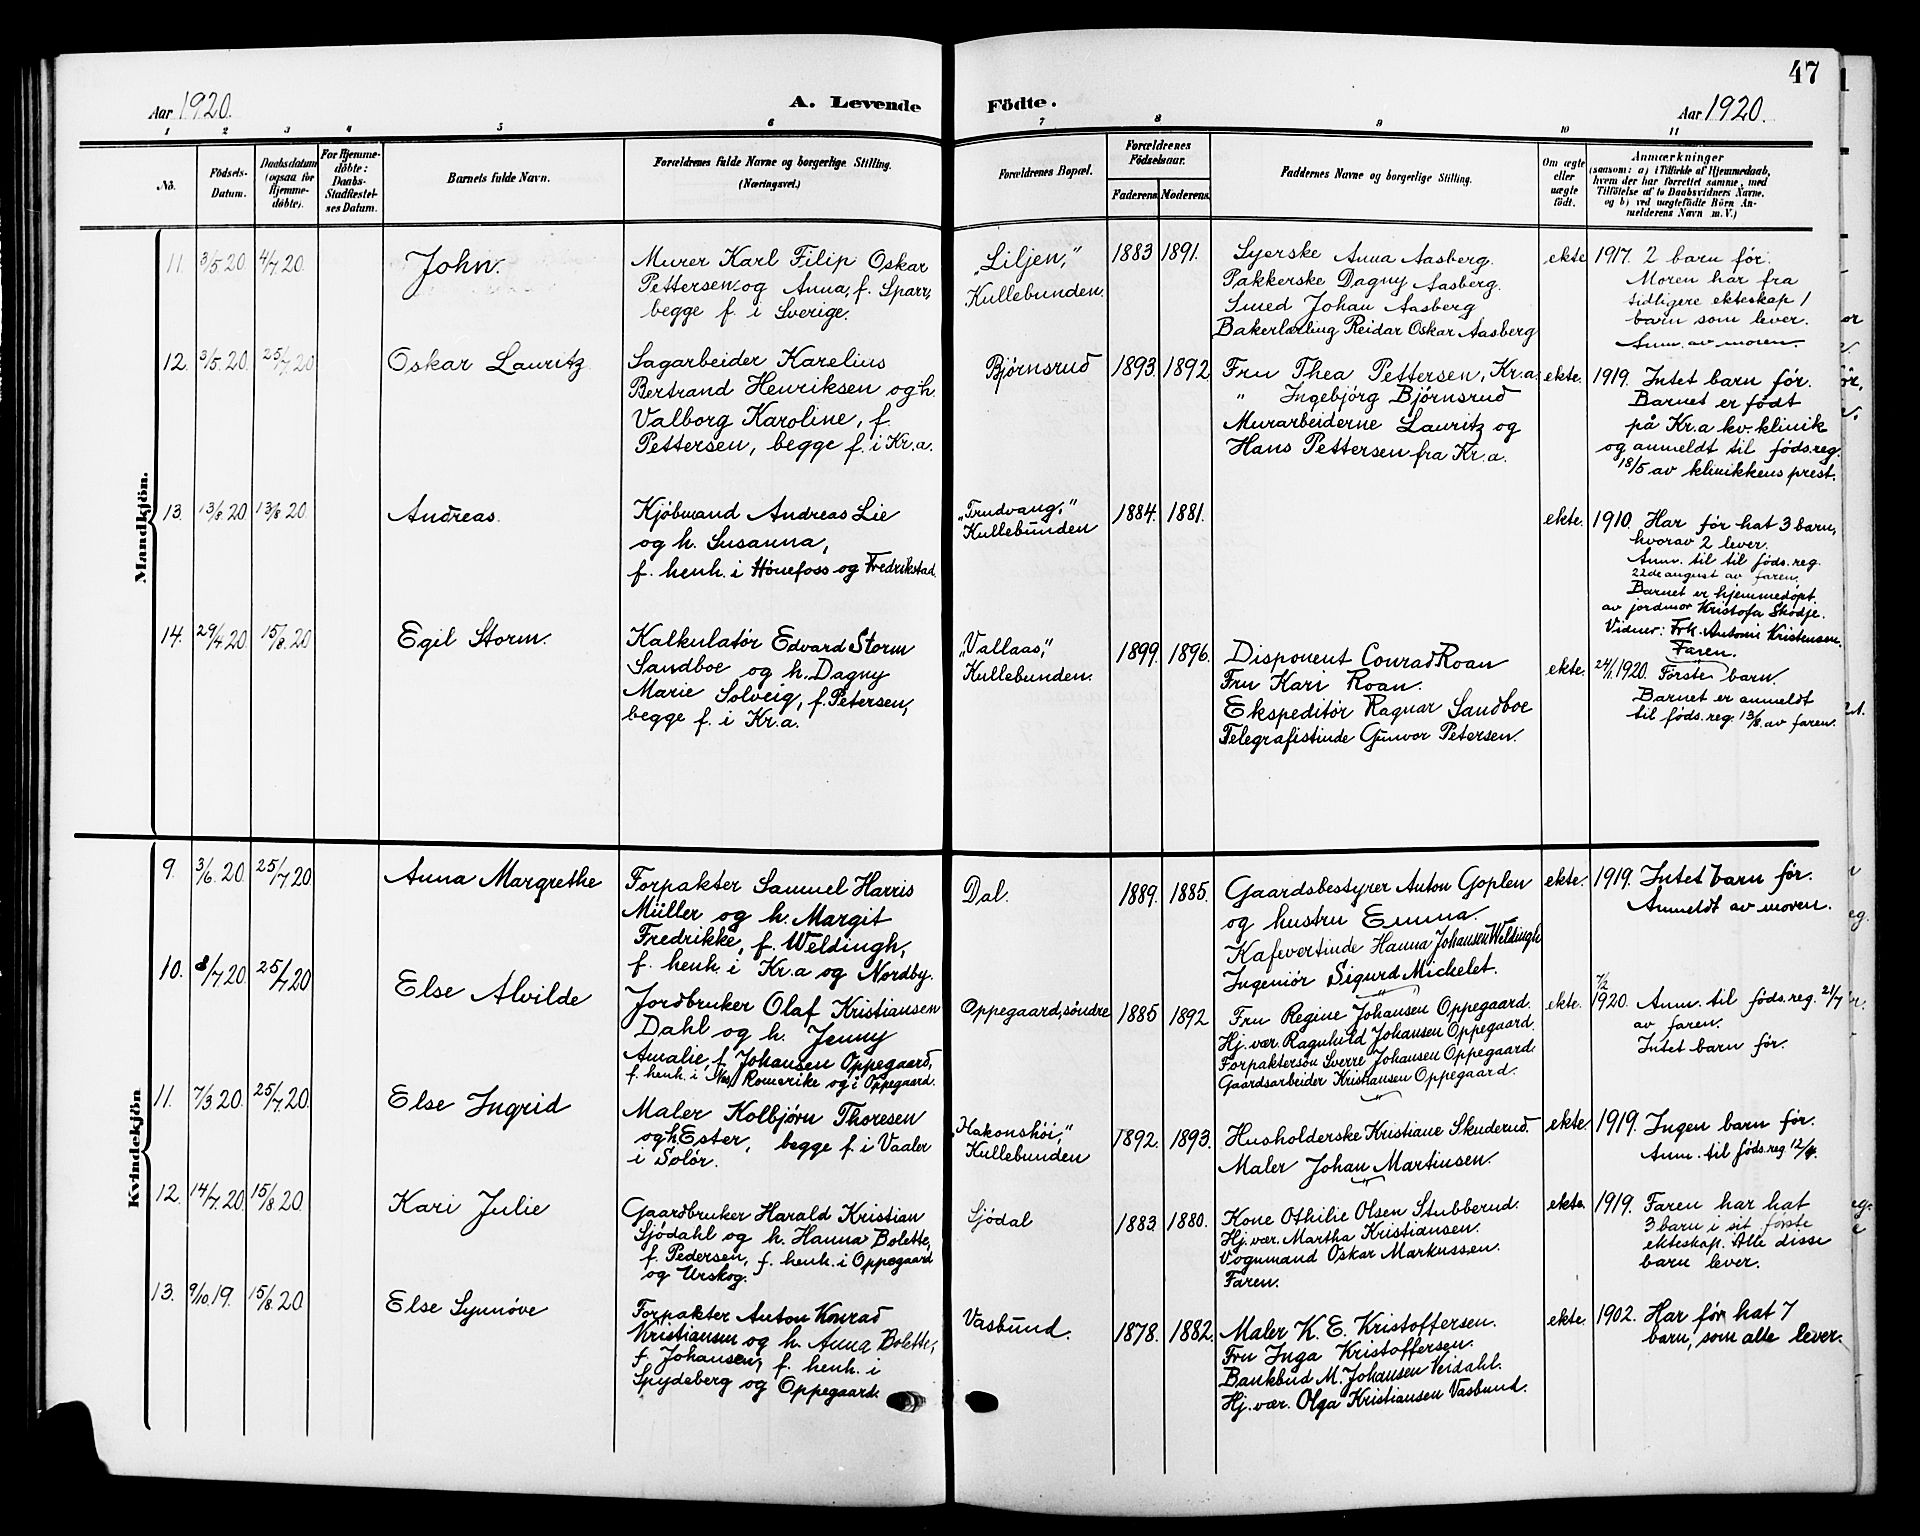 47
Aar 1920.
A. Levende Födte.
Aar 1920.
1 2 3 4 5 6 7 8 9 10 11
No.
Födsels-Datum.
Daabsdatum (ogsaa for Hjemme-döbte).
For Hjemme-döbte: Daabs-Stadfæstel-ses Datum.
Barnets fulde Navn.
Forældrenes fulde Navne og borgerlige Stilling.
(Næringsvei.)
Forældrenes Bopæl.
Forældrenes Födselsaar.
Faderens. Moderens.
Faddernes Navne og borgerlige Stilling.
Om ægte eller uægte födt.
Anmærkninger
(saasom: a) i Tilfælde af Hjemmedaab,
hvem der har forrettet samme, med
Tilföielse af to Daabsvidners Navne.
og b) ved uægtefödte Börn An-
melderens Navn m. V.)
Mandkjön.
11. 3/5 20 4/7 20
John.
Murer Karl Filip Oskar
Pettersen og Anna, f. Sparr,
begge f. i Sverige.
"Liljen,"
Kullebunden.
1883 1891.
Syerske Anna Aasberg.
Pakkerske Dagny Aasberg.
Smed Johan Aasberg
Bakerlærling Reidar Oskar Aasberg
ekte
1917. 2 barn før.
Moren har fra
tidligere ekteskap 1
barn som lever.
Anm. av moren.
12. 3/5 20. 25/7 20
Oskar Lauritz
Sagarbeider Karelius
Bertrand Henriksen og h.
Valborg Karoline, f.
Pettersen, begge f. i Kr.a.
Bjørnsrud
1893. 1892.
Fru Thea Pettersen, Kr.a.
" Ingebjørg Bjørnsrud
Murarbeiderne Lauritz og
Hans Pettersen fra Kr.a.
ekte.
1919. Intet barn før.
Barnet er født
på Kr.a kv.klinik
og anmeldt til føds.reg.
18/5 av klinikkens prest.
13. 13/8 20 13/8 20
Andreas.
Kjøbmand Andreas Lie
og h. Susanna,
f. henh. i Hønefoss og Fredrikstad.
"Trudvang,"
Kullebunden
1884. 1881.
ekte.
1910. Har før hat 3 barn,
hvorav 2 lever.
Anm. til til føds.reg.
22de august av faren.
Barnet er hjemmedøpt
av jordmor Kristofa Skodje.
Vidner: Frk. Antoni Kristensen.
Faren.
14. 29/4 20 15/8 20
Egil Storm.
Kalkulatør Edvard Storm
Sandboe og h. Dagny
Marie Solveig, f. Petersen,
begge f. i Kr.a.
"Vallaas,"
Kullebunden.
1899. 1896.
Disponent Conrad Roan
Fru Kari Roan.
Ekspeditør Ragnar Sandboe
Telegrafistinde Gunvor Petersen.
ekte.
24/1 1920. Første barn
Barnet er anmeldt
til føds.reg. 13/8 av faren.
Kvindekjön
9. 3/6 20 25/7 20
Anna Margrethe
Forpakter Samuel Harris
Müller og h. Margit
Fredrikke, f. Weldingh,
f. henh. i Kr.a og Nordby.
Dal.
1889. 1885.
Gaardsbestyrer Anton Goplen
og hustru Emma.
Kafevertinde Hanna Johansen Weldingh
Ingeniør Sigurd Michelet.
ekte.
1919. Intet barn før.
Anmeldt av moren.
10. 8/7 20 25/7 20
Else Alvilde
Jordbruker Olaf Kristiansen
Dahl og h. Jenny
Amalie, f. Johansen Oppegaard,
f. henh. i Nes, Romerike og i Oppegaard.
Oppegaard, søndre
1885 1892
Fru Regine Johansen Oppegaard.
Hj. vær. Ragnhild Johansen Oppegaard.
Forpaktersøn Sverre Johansen Oppegaard.
Gaardsarbeider Kristiansen Oppegaard.
ekte.
7/2
1920. Anm. til føds.reg. 21/7
av faren.
Intet barn før.
11. 7/3 20. 25/7 20.
Else Ingrid
Maler Kolbjørn Thoresen
og h Ester, begge f. i Vaaler
i Solør.
"Hakonshøi,"
Kullebunden
1892. 1893.
Husholderske Kristiane Skuderud.
Maler Johan Martinsen.
ekte.
1919. Ingen barn før.
Anm. til føds.reg. 12/4.
12. 14/7 20. 15/8 20
Kari Julie
Gaardbruker Harald Kristian
Sjødahl og h. Hanna Bolette,
f. Pedersen, f. henh. i Oppegaard
og Urskog.
Sjödal
1883. 1880.
Kone Othilie Olsen Stubberud.
Hj. vær. Martha Kristiansen.
Vognmand Oskar Markussen.
Faren.
ekte.
1919. Faren har hat
3 barn i sit første
ekteskap. Alle disse
barn lever.
13. 9/10 19. 15/8 20
Else Synnøve
Forpakter Anton Konrad
Kristiansen og h. Anna Bolette,
f. Johansen, f. henh. i
Spydeberg og Oppegaard.
Vasbund.
1878. 1882.
Maler K. E. Kristoffersen.
Fru Inga Kristoffersen.
Bankbud M. Johansen Veidahl.
Hj. vær. Olga Kristiansen Vasbund.
ekte.
1902. Har før hat 7
barn, som alle lever.